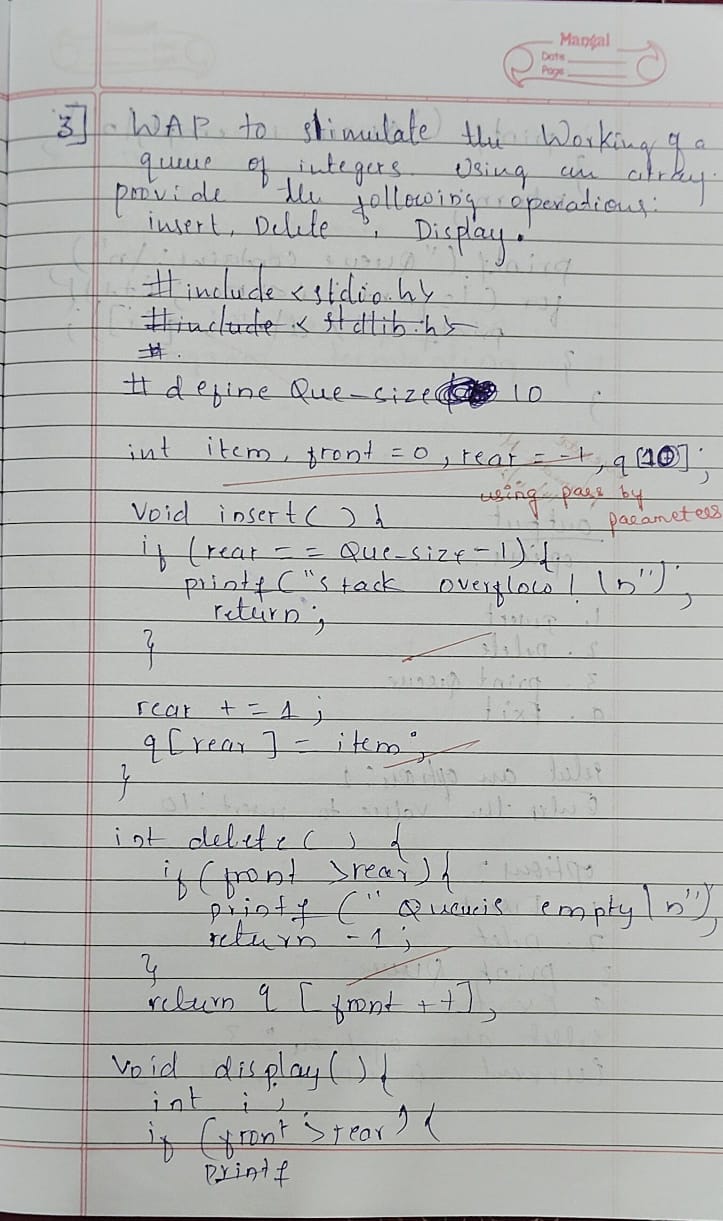 Mangal
Date
Page
3] WAP to stimulate the Working of a
queue of integers. Using an array.
provide the following operations:
insert, Delete, Display.
#include <stdio.h>
#include < stdlib.h>
#.
# define Que-size 10
int item, front = 0, rear = -1, q[10];
using pass by
parameters
Void insert( ) {
if (rear == Que-size-1) {
printf ("stack overflow! \n");
return;
}
rear += 1;
q[rear] = item;
}
int delete ( ) {
if (front >rear) {
printf (" Queueis empty \n");
return -1;
}
return q [front ++];
Void display( ) {
int i;
if (front >rear) {
printf